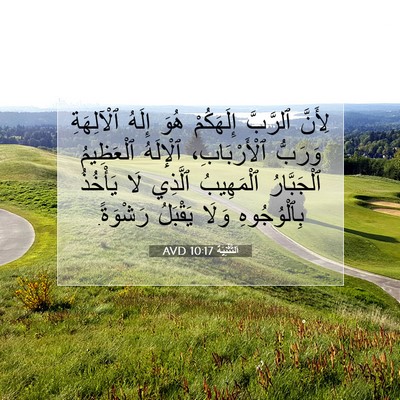 لِأَنَّ ٱلرَّبَّ إِلَهَكُمْ هُوَ إِلَهُ ٱلْآلِهَةِ
وَرَبُّ ٱلْأَرْبَابِ، ٱلْإِلَهُ ٱلْعَظِيمُ
ٱلْجَبَّارُ ٱلْمَهِيبُ ٱلَّذِي لَا يَأْخُذُ
بِٱلْوُجُوهِ وَلَا يَقْبَلُ رَشْوَةً.
اَلتَّثْنِيَة 10:17 AVD